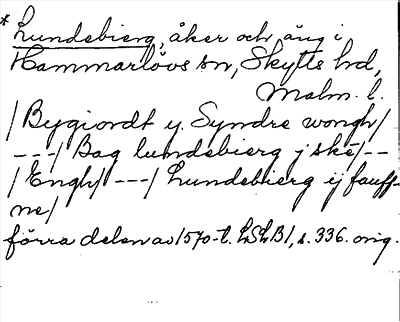 * Lundebierg, åker och äng i
Hammarlövs sn, Skytts hd,
Malm. l.
/Bygiordt y. Syndre wongh/
---/Bag lundebierg j skē/--
/Engh/---/Lundebierg ij fauff-
ne/
förra delen av 1570-t. LSLB1, s. 336. orig.